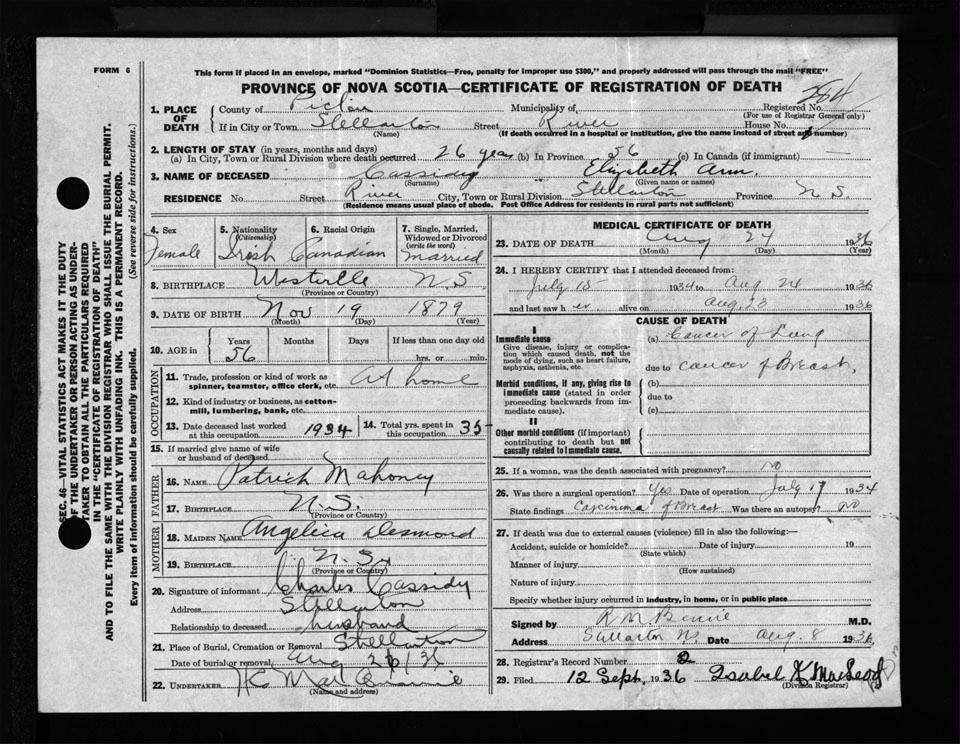 FORM 6
This form if placed in an envelope, marked "Dominion Statistics—Free, penalty for improper use $300," and properly addressed will pass through the mail "FREE"
PROVINCE OF NOVA SCOTIA—CERTIFICATE OF REGISTRATION OF DEATH
1. PLACE OF DEATH { County of Pictou Municipality of Registered No. 364
(For use of Registrar General only)
If in City or Town Stellarton Street River House No.
(Name) (If death occurred in a hospital or institution, give the name instead of street and number)
2. LENGTH OF STAY (in years, months and days)
(a) In City, Town or Rural Division where death occurred 26 years (b) In Province 56 (c) In Canada (if immigrant)
3. NAME OF DECEASED Cassidy Elizabeth Ann.
(Surname) (Given name or names)
RESIDENCE No. Street River City, Town or Rural Division Stellarton Province N S.
(Residence means usual place of abode. Post Office Address for residents in rural parts not sufficient)
4. Sex 5. Nationality (Citizenship) 6. Racial Origin 7. Single, Married, Widowed or Divorced (write the word)
Female Irish Canadian Married
8. BIRTHPLACE Westville N.S.
(Province or Country)
9. DATE OF BIRTH Nov 19 1879
(Month) (Day) (Year)
10. AGE in Years Months Days If less than one day old
56 hrs. or min.
OCCUPATION
11. Trade, profession or kind of work as spinner, teamster, office clerk, etc. at home
12. Kind of industry or business, as cotton-mill, lumbering, bank, etc.
13. Date deceased last worked at this occupation 1934 14. Total yrs. spent in this occupation 35
15. If married give name of wife or husband of deceased
FATHER
16. NAME Patrick Mahoney
17. BIRTHPLACE N.S.
(Province or Country)
MOTHER
18. MAIDEN NAME Angelica Desmond
19. BIRTHPLACE N.S.
(Province or Country)
20. Signature of informant Charles Cassidy
Address Stellarton
Relationship to deceased husband
21. Place of Burial, Cremation or Removal Stellarton
Date of burial or removal Aug 26/36
22. UNDERTAKER
(Name and address)
MEDICAL CERTIFICATE OF DEATH
23. DATE OF DEATH Aug 24 1936
(Month) (Day) (Year)
24. I HEREBY CERTIFY that I attended deceased from
July 15 1934 to Aug 24 1936
and last saw her alive on Aug. 23 1936
CAUSE OF DEATH
I
Immediate cause (a) Cancer of Lung
Give disease, injury or complication which caused death, not the mode of dying, such as heart failure, asphyxia, asthenia, etc.
due to cancer of Breast,
Morbid conditions, if any, giving rise to immediate cause (stated in order proceeding backwards from immediate cause).
(b)
due to
(c)
II
Other morbid conditions (if important) contributing to death but not causally related to immediate cause.
25. If a woman, was the death associated with pregnancy? NO
26. Was there a surgical operation? Yes Date of operation July 17 1934
State findings Carcinoma of Breast Was there an autopsy? NO
27. If death was due to external causes (violence) fill in also the following:—
Accident, suicide or homicide? Date of injury 19
(State which)
Manner of injury
(How sustained)
Nature of injury
Specify whether injury occurred in industry, in home, or in public place
Signed by R M Benvie M.D.
Address Stellarton NS Date Aug. 8 1936
28. Registrar's Record Number 2
29. Filed 12 Sept. 1936 Isabel K MacLeod
(Division Registrar)
SEC. 46—VITAL STATISTICS ACT MAKES IT THE DUTY
OF THE UNDERTAKER OR PERSON ACTING AS UNDER-
TAKER TO OBTAIN ALL THE PARTICULARS REQUIRED
IN THE "CERTIFICATE OF REGISTRATION OF DEATH"
AND TO FILE THE SAME WITH THE DIVISION REGISTRAR WHO SHALL ISSUE THE BURIAL PERMIT.
WRITE PLAINLY WITH UNFADING INK. THIS IS A PERMANENT RECORD.
Every item of information should be carefully supplied. (See reverse side for instructions.)